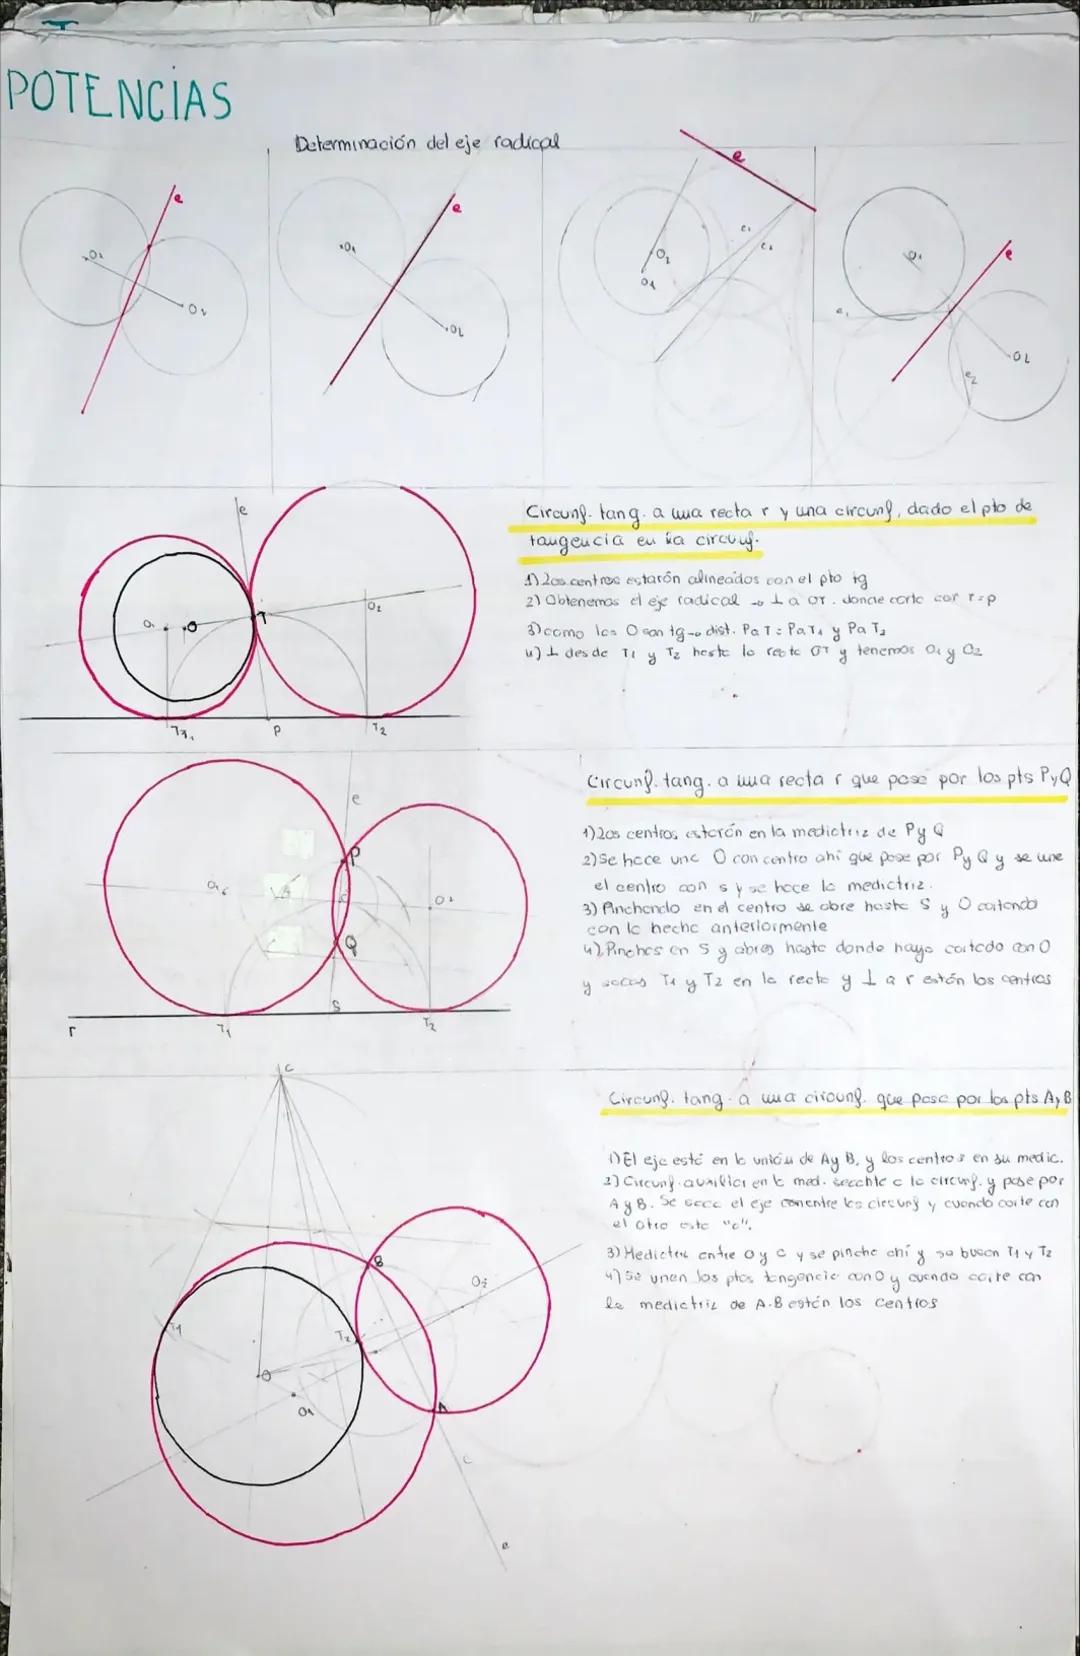 POTENCIAS
Determinación del eje radical
e
O1
O2
e
O1
O2
e
e1
e2
O2
O1
e
O1
e1
e2
O2
e
O1
O
T
O2
T1
P
T2
Circunf. tang. a una recta r y una circunf, dado el pto de
tangencia en la circunf.
1) Los centros estarán alineados con el pto tg
2) Obtenemos el eje radical → ⊥ a OT. donde corte con r=p
3) como los O son tg → dist. P a T = P a T1 y P a T2
4) ⊥ desde T1 y T2 hasta la recta OT y tenemos O1 y O2
e
P
O1
O2
Q
S
r
T1
T2
Circunf. tang. a una recta r que pase por los pts P y Q
1) Los centros estarán en la medictriz de P y Q
2) Se hace una O con centro ahí que pase por P y Q y se une
el centro con s y se hace la medictriz.
3) Pinchando en el centro se abre hasta S y O cortando
con lo hecho anteriormente
4) Pinchas en S y abres hasta donde haya cortado con O
y sacas T1 y T2 en la recta y ⊥ a r están los centros
C
B
T1
T2
O2
O
O1
A
C
e
Circunf. tang. a una circunf. que pase por los pts A y B
1) El eje está en la unión de A y B, y los centros en su medic.
2) Circunf. auxiliar en la med. secante a la circunf. y pase por
A y B. Se saca el eje con entre las circunf y cuando corte con
el otro esta "c".
3) Medictriz entre O y C y se pincha ahí y se buscan T1 y T2
4) Se unen los ptos tangencia con O y cuando corte con
la medictriz de A-B están los centros